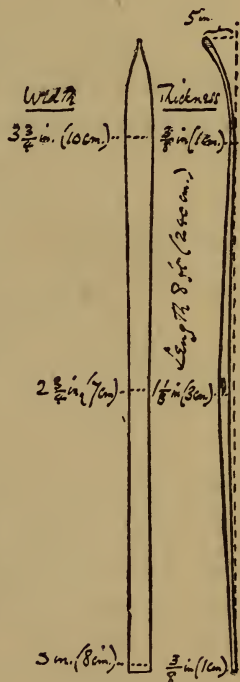 5 in.
Width Thickness
3 3/4 in. (10cm.) 3/8 in (1cm.)
Length 8 ft (240cm.)
2 3/4 in, (7cm) 1 1/8 in (3cm.)
3 in. (8cm.) 3/8 in (1cm)